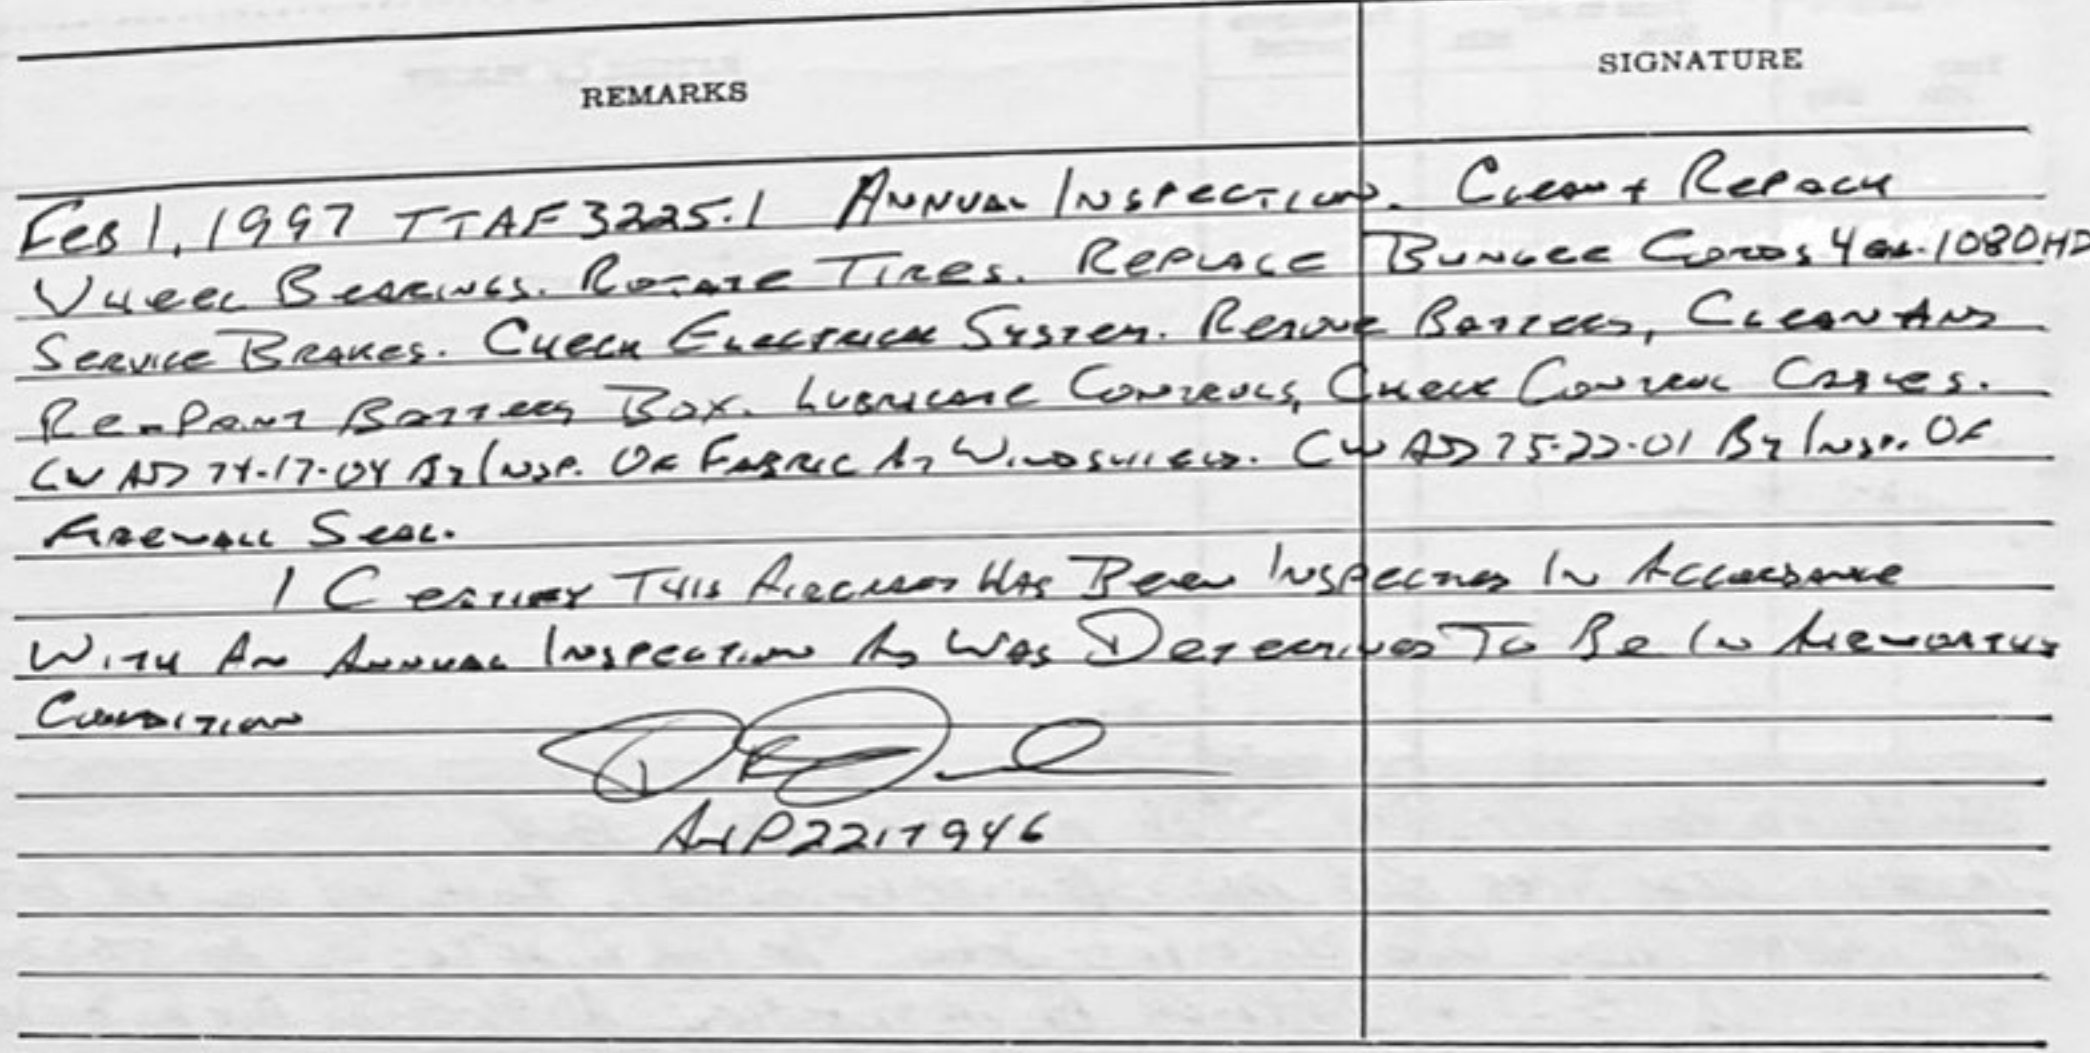 REMARKS SIGNATURE
Feb 1, 1997 TTAF 3225.1 Annual Inspection. Clean + Repack
Wheel Bearings. Rotate Tires. Replace Bungee Cords 4 ea. 1080HD
Service Brakes. Check Electrical System. Remove Battery, Clean And
Re-Paint Battery Box. Lubricate Controls, Check Control Cables.
CW AD 74-17-04 By Insp. Of Fabric At Windshield. CW AD 75-22-01 By Insp. Of
Firewall Seal.
I Certify This Aircraft Has Been Inspected In Accordance
With An Annual Inspection & Was Determined To Be In Airworthy
Condition
A+P2217946